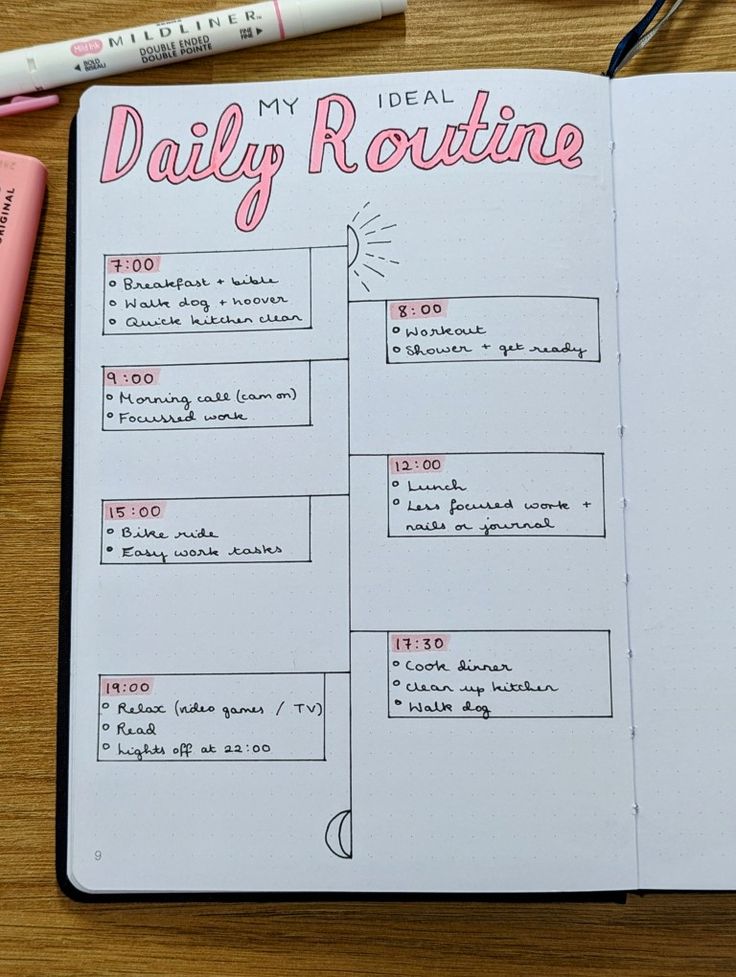 MILDLINER™
Mild Ink
DOUBLE ENDED
DOUBLE POINTE
BOLD
BISEAU
FINE
FINE
ORIGINAL
MY IDEAL
Daily Routine
7:00
Breakfast + bible
Walk dog + hoover
Quick kitchen clean
8:00
Workout
Shower + get ready
9:00
Morning call (cam on)
Focussed work
12:00
Lunch
Less focused work +
nails or journal
15:00
Bike ride
Easy work tasks
17:30
Cook dinner
Clean up kitchen
Walk dog
19:00
Relax (video games / TV)
Read
Lights off at 22:00
9